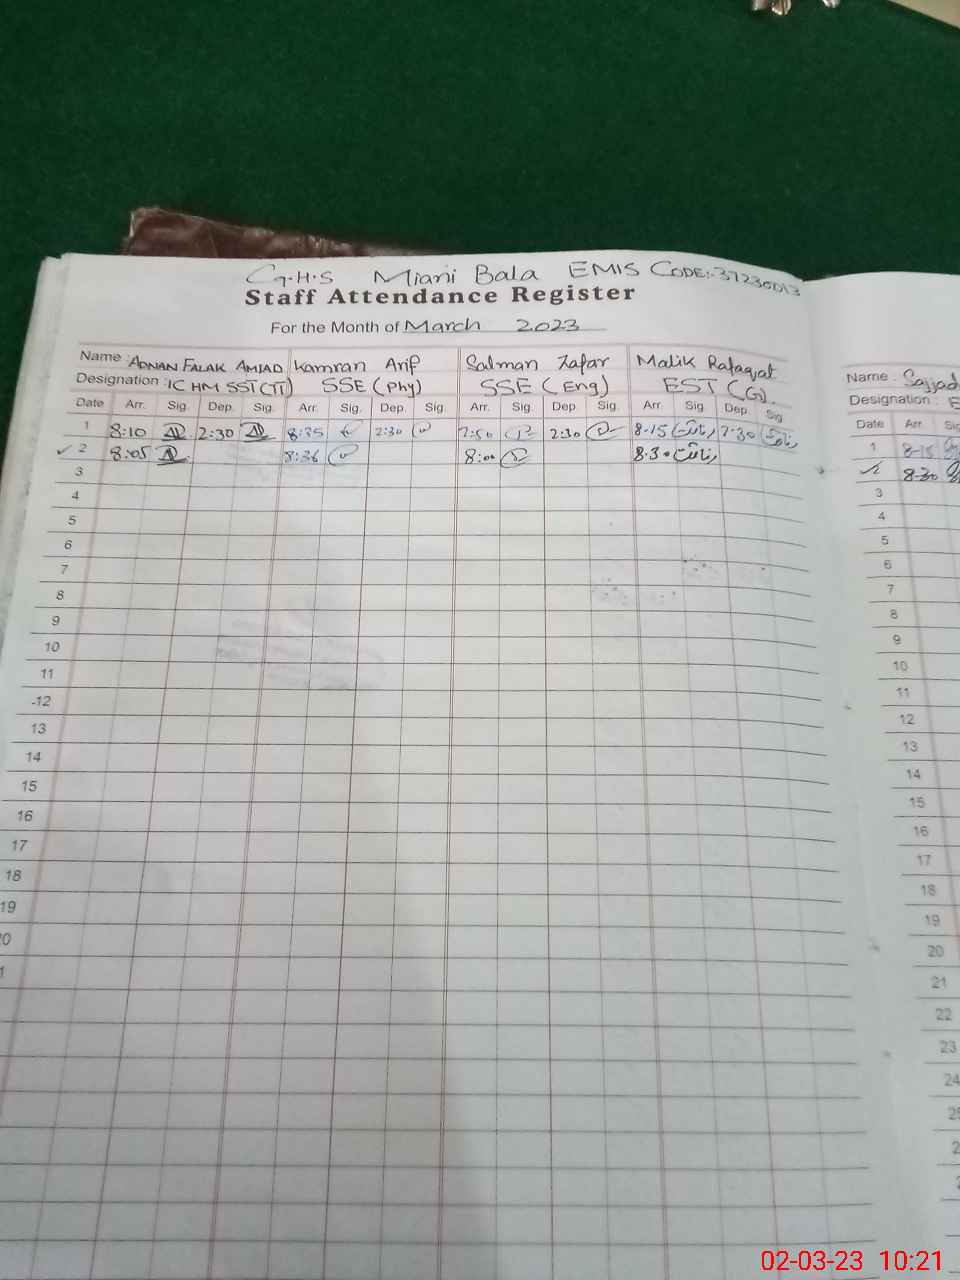 G.H.S Miani Bala EMIS CODE:-37230013
Staff Attendance Register
For the Month of March 2023
Name : ADNAN FALAK AMJAD Kamran Arif Salman Zafar Malik Rafaqat
Designation : IC HM SST(IT) SSE (Phy) SSE (Eng) EST (G).
Date Arr. Sig. Dep. Sig. Arr. Sig. Dep. Sig. Arr. Sig. Dep. Sig. Arr. Sig. Dep. Sig.
1 8:10 2:30 8:35 2:30 7:50 2:30 8-15 رفاقت 2-30 رفاقت
✓ 2 8:05 8:36 8:00 8.30 رفاقت
3
4
5
6
7
8
9
10
11
12
13
14
15
16
17
18
19
Name : Sajjad
Designation : E
Date Arr. Sig
1 8-15
2 8-30
3
4
5
6
7
8
9
10
11
12
13
14
15
16
17
18
19
20
21
22
23
24
02-03-23 10:21